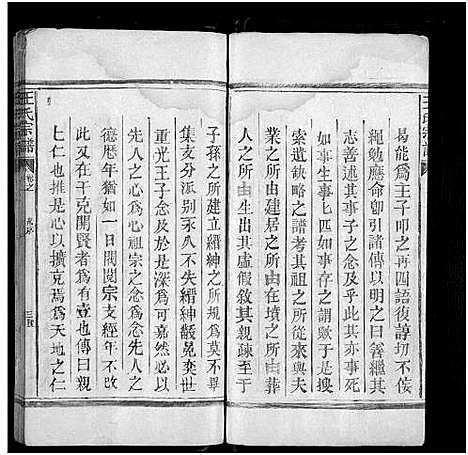 易能為王子叩之再四語復諄切不侫
繩勉應命卽引諸傳以明之曰善繼其
志善述其事子之念及此其亦事死
如事生事亡如事存之謂歟于是搜
索遺缺略之譜考其祖之所歷以何
業之所由建居之所由在墳之所由葬
人之所由生出其虛假敘其親疎至于
子孫之所建立縉紳之所規為莫不
集支分派別永久不失縉紳嚴旄奕世
重光王子念及於是深為可嘉然必以
先人之心為心祖宗之念為念先人之
德歷年猶如一日開閱宗支經年不改
此又在于克開賢者為有益也傳曰親
上仁也推是心以擴克焉為天地之仁
王氏宗譜
卷之